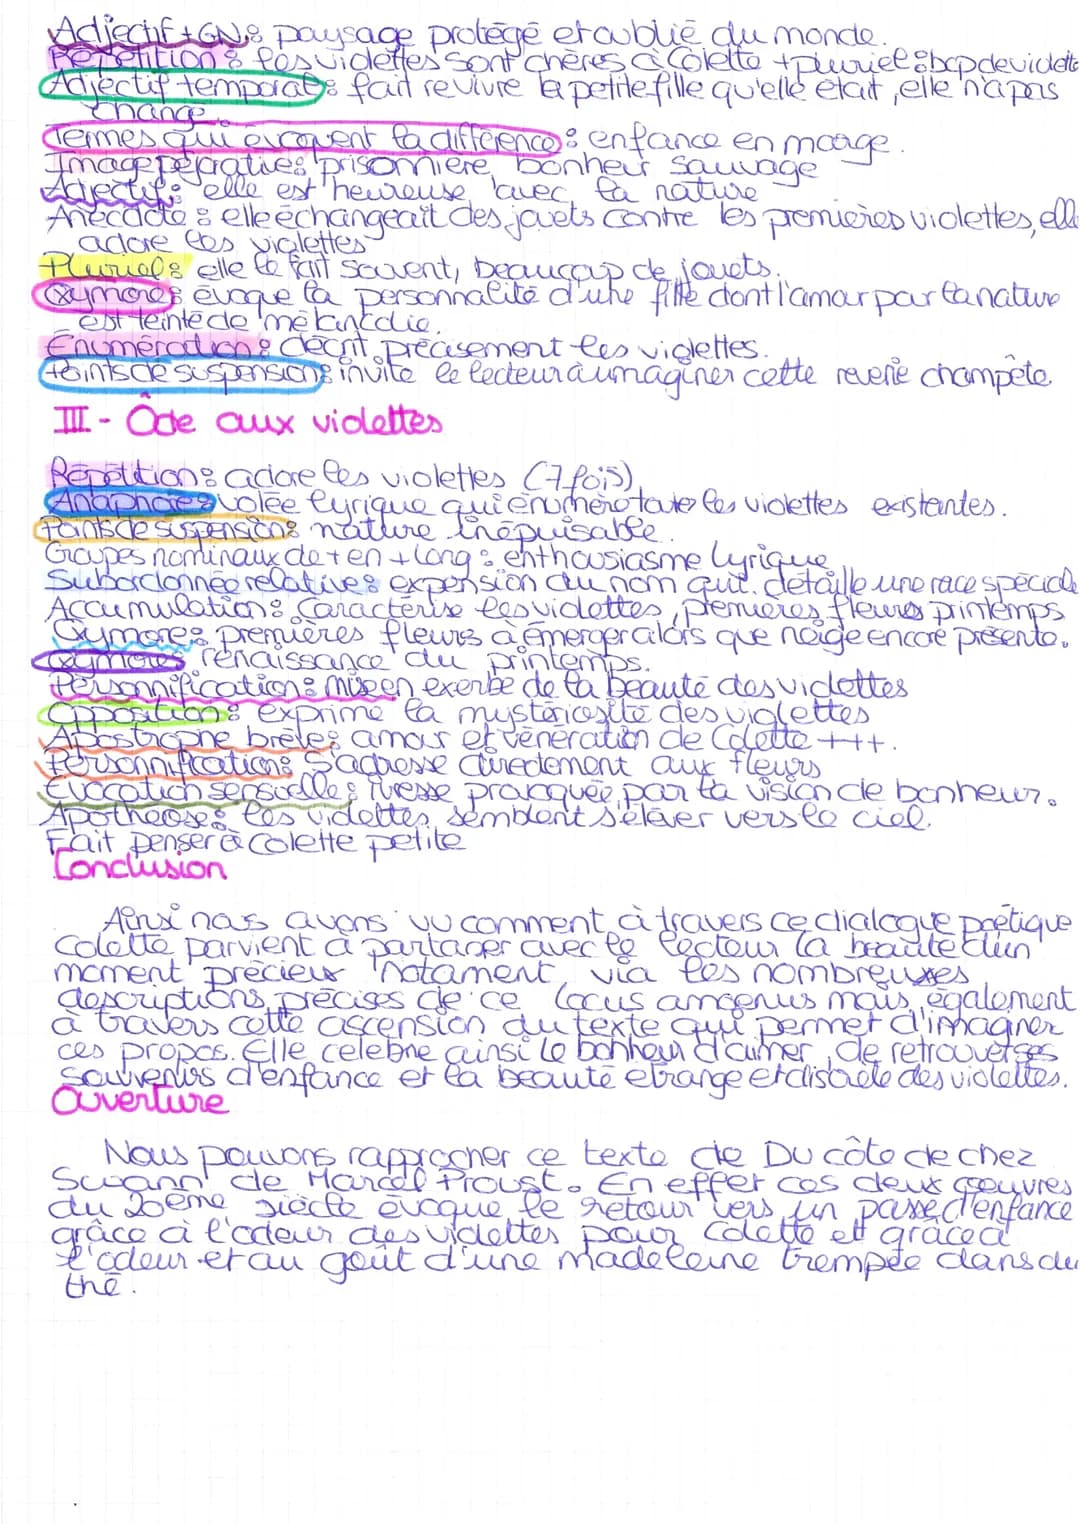 Adjectif + GN : paysage protégé et oublié du monde.
Répétition : les violettes sont chères à Colette + pluriel : bcp de violett
Adjectif temporal : fait revivre la petite fille qu'elle était, elle n'a pas
changé.
Termes qui évoquent la différence : enfance en marge.
Image péjorative : prisonnière, bonheur sauvage
Adjectif : elle est heureuse avec la nature
Anecdote : elle échangeait des jouets contre les premières violettes, elle
adore les violettes
Pluriel : elle le fait souvent, beaucoup de jouets.
Oxymore : évoque la personnalité d'une fille dont l'amour par la nature
est teinté de mélancolie.
Énumération : décrit précisement les violettes.
Points de suspension : invite le lecteur à imaginer cette reverie champête.
III - Ôde aux violettes
Répétition : adore les violettes (7 fois)
Anaphore : volée lyrique qui énumère toute les violettes existantes.
Points de suspension : nature inépuisable.
Groupes nominaux de + en + long : enthousiasme lyrique
Subordonnée relative : expension du nom qui détaille une race spéciale
Accumulation : Caractérise les violettes, premières fleures printemps
Oxymore : premières fleurs à émerger alors que neige encore présente.
Oxymore renaissance du printemps.
Personnification : mise en exerbe de la beauté des violettes
Opposition : exprime la mystériosité des violettes
Apostrophe brêle : amour et vénération de Colette +++.
Personnification : S'adresse directement aux fleurs
Évocation sensuelle : ivesse provoquée par la vision de bonheur.
Apothéose : les violettes semblent s'élever vers le ciel.
Fait penser à Colette petite
Conclusion
Ainsi nous avons vu comment à travers ce dialogue poétique
Colette parvient à partager avec le lecteur la beauté d'un
moment précieux notament via les nombreuses
descriptions précises de ce locus amoenus mais également
à travers cette ascension du texte qui permet d'imaginer
ces propos. Elle celebre ainsi le bonheur d'aimer, de retrouver ses
souvenirs d'enfance et la beauté étrange et discrète des violettes.
Ouverture
Nous pouvons rapprocher ce texte de Du côte de chez
Swann de Marcel Proust. En effet ces deux oeuvres
du 20ème siècle évoque le retour vers un passé d'enfance
grâce à l'odeur des violettes pour Colette et grâce à
l'odeur et au goût d'une madeleine trempée dans du
thé.